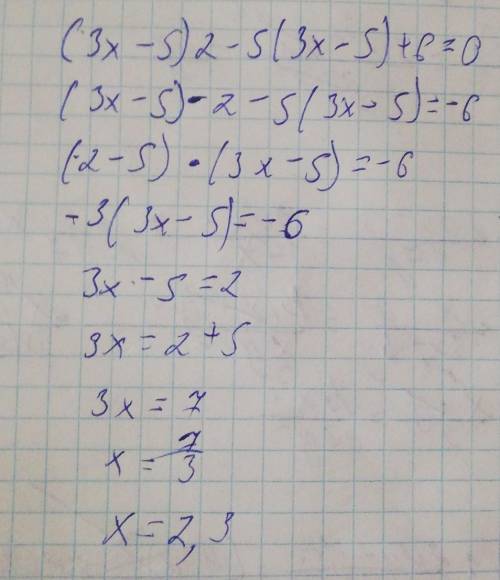 (3x-5)2-5(3x-5)+6=0
(3x-5)·2-5(3x-5)=-6
(2-5)·(3x-5)=-6
-3(3x-5)=-6
3x-5=2
3x=2+5
3x=7
x=7/3
x=2,3